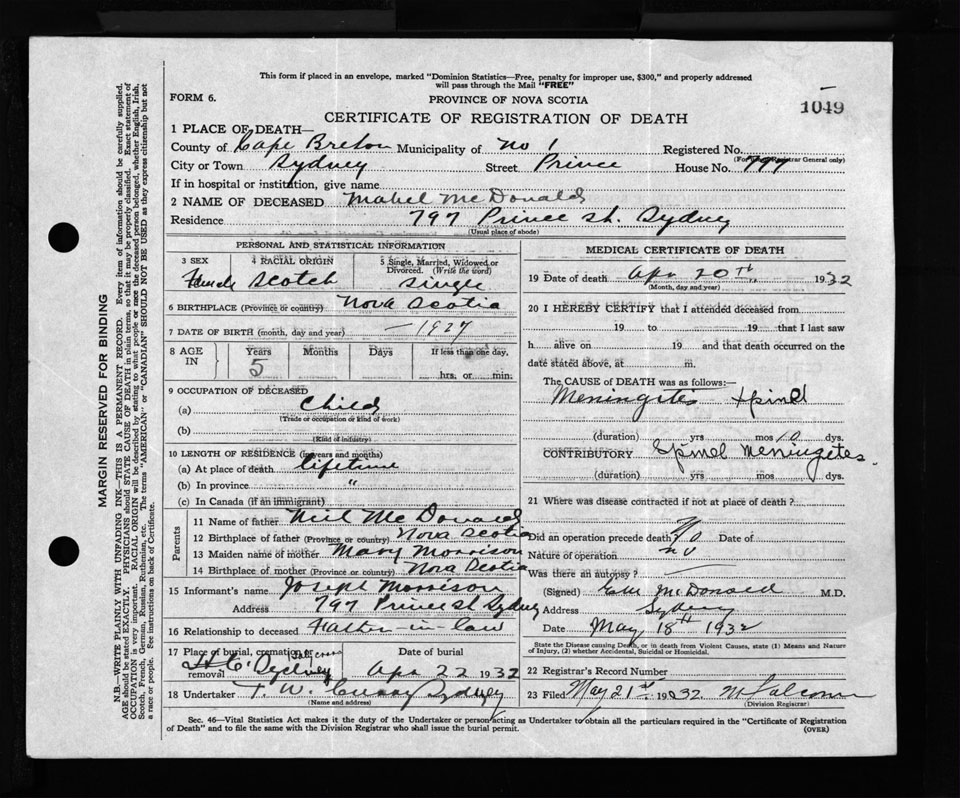 This form if placed in an envelope, marked "Dominion Statistics—Free, penalty for improper use, $300," and properly addressed
will pass through the Mail "FREE"
FORM 6.
PROVINCE OF NOVA SCOTIA
1049
CERTIFICATE OF REGISTRATION OF DEATH
1 PLACE OF DEATH—
County of Cape Breton Municipality of No 1 Registered No.
(For use of Registrar General only)
City or Town Sydney Street Prince House No. 797
If in hospital or institution, give name
2 NAME OF DECEASED Mabel McDonald
Residence 797 Prince St. Sydney
(Usual place of abode)
PERSONAL AND STATISTICAL INFORMATION
3 SEX 4 RACIAL ORIGIN 5 Single, Married, Widowed or Divorced. (Write the word)
Female Scotch Single
6 BIRTHPLACE (Province or country) Nova Scotia
7 DATE OF BIRTH (month, day and year) — 1927
8 AGE IN Years Months Days If less than one day,
5 hrs. or min.
9 OCCUPATION OF DECEASED
(a) Child
(Trade or occupation or kind of work)
(b)
(Kind of industry)
10 LENGTH OF RESIDENCE (in years and months)
(a) At place of death lifetime
(b) In province "
(c) In Canada (if an immigrant)
Parents
11 Name of father Neil McDonald
12 Birthplace of father (Province or country) Nova Scotia
13 Maiden name of mother Mary Morrison
14 Birthplace of mother (Province or country) Nova Scotia
15 Informant's name Joseph Morrison
Address 797 Prince St Sydney
16 Relationship to deceased Father-in-law
17 Place of burial, cremation or removal Date of burial
Sydney Apr 22 1932
18 Undertaker T. W. Curry Sydney
(Name and address)
MEDICAL CERTIFICATE OF DEATH
19 Date of death Apr 20th 1932
(Month, day and year)
20 I HEREBY CERTIFY that I attended deceased from
19 to 19 that I last saw
h alive on 19 and that death occurred on the
date stated above, at m.
The CAUSE OF DEATH was as follows:—
Meningitis Spinel
(duration) yrs mos 10 dys.
CONTRIBUTORY Spinel Meningites.
(duration) yrs mos dys.
21 Where was disease contracted if not at place of death?
Did an operation precede death? No Date of
Nature of operation no
Was there an autopsy? —
(Signed) McDonald M.D.
Address Sydney
Date May 18th 1932
State the Disease causing Death, or in death from Violent Causes, state (1) Means and Nature
of Injury, (2) whether Accidental, Suicidal or Homicidal.
22 Registrar's Record Number
23 Filed May 21st 1932 M Falconer
(Division Registrar)
Sec. 46—Vital Statistics Act makes it the duty of the Undertaker or person acting as Undertaker to obtain all the particulars required in the "Certificate of Registration
of Death" and to file the same with the Division Registrar who shall issue the burial permit.
(OVER)
MARGIN RESERVED FOR BINDING
N.B.—WRITE PLAINLY WITH UNFADING INK—THIS IS A PERMANENT RECORD. Every item of information should be carefully supplied.
AGE should be stated EXACTLY. PHYSICIANS should STATE CAUSE OF DEATH in plain terms, so that it may be properly classified. Exact statement of
OCCUPATION is very important. RACIAL ORIGIN will be described by stating to what people or race the deceased person belonged, whether English, Irish,
Scotch, French, German, Russian, Ruthenian, etc. The terms "AMERICAN" or "CANADIAN" SHOULD NOT BE USED as they express citizenship but not
a race or people. See instructions on back of Certificate.